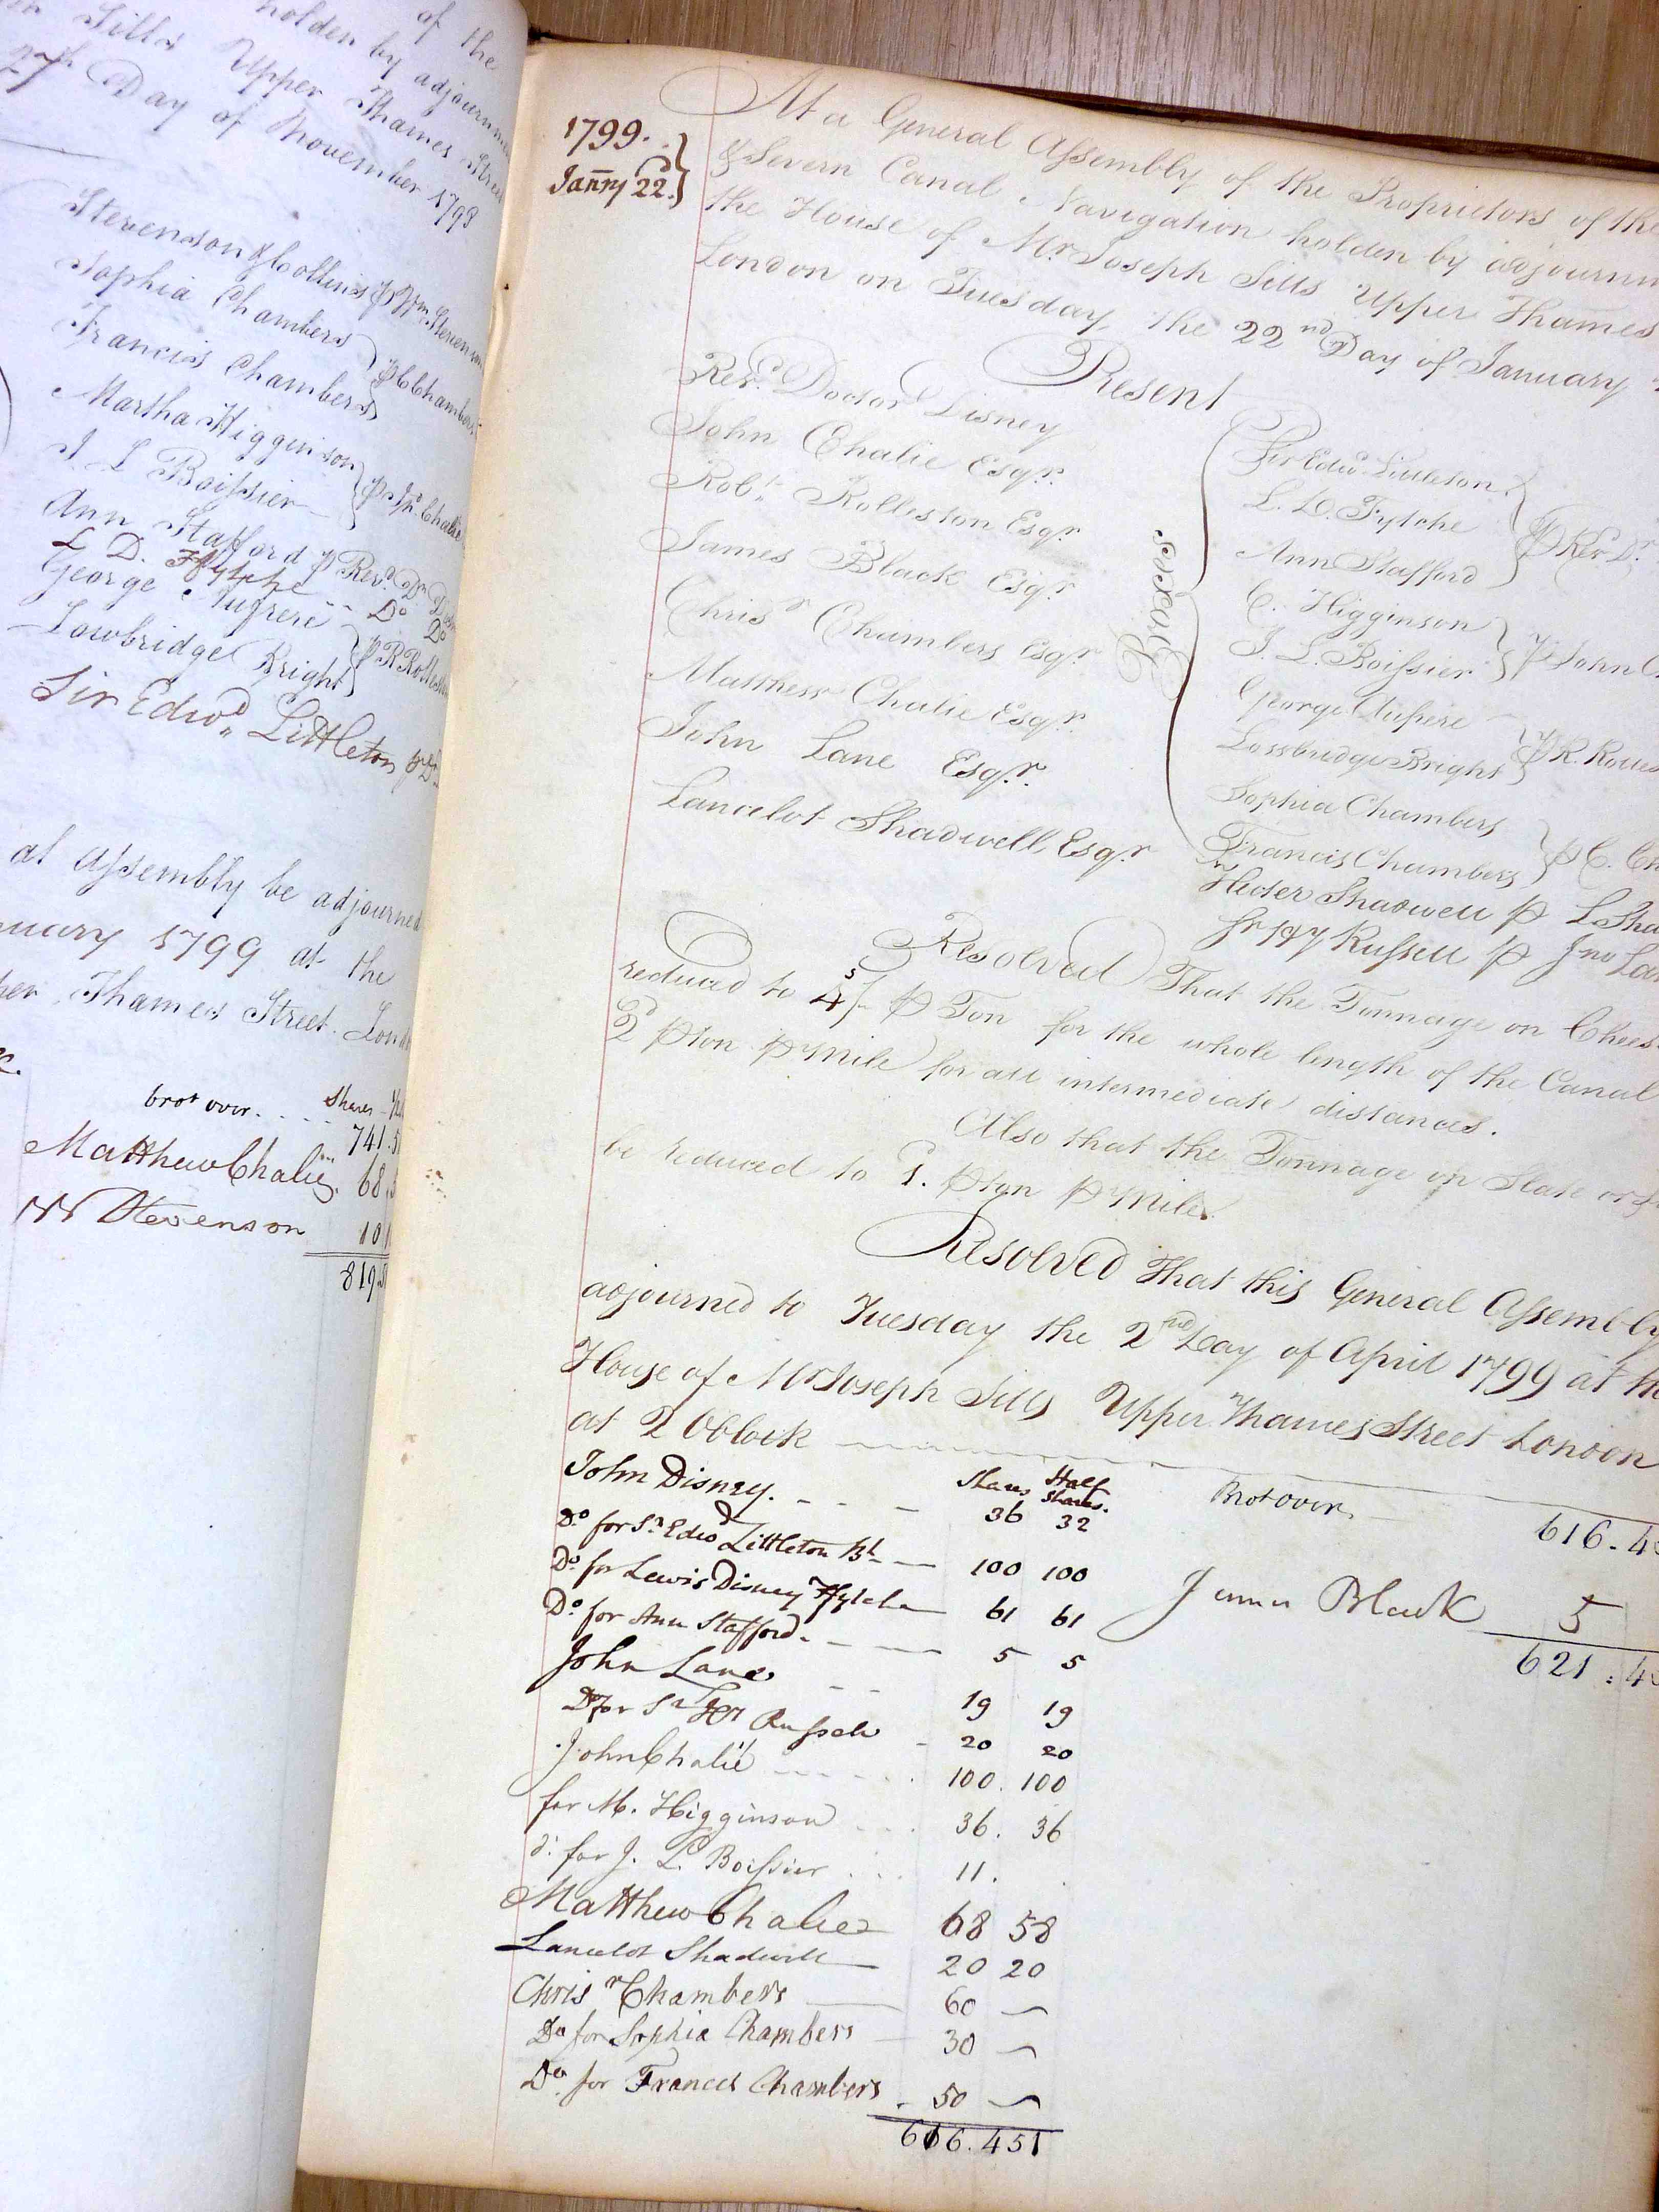 of the
holden by adjournm
Sills Upper Thames Street
27th Day of November 1798
Stevenson & Collins ⅌ Wm Stevenson
Sophia Chambers
Francis Chambers } ⅌ C Chambers
Martha Higginson
J L Boissier } ⅌ Jn. Chalie
Ann Stafford ⅌ Revd. Dr.
L D. Fytche Do Do
George Aufrere
Lowbridge Bright } ⅌ R Rolles
Sir Edwd. Littleton ⅌ Dr.
at Assembly be adjourned
nuary 1799 at the
per Thames Street. Lond
brot over... Shares
741.5
Matthew Chalie 68.5
W Stevenson 10
819.5
1799.
Janry 22d. }
At a General Assembly of the Proprietors of the
& Severn Canal Navigation holden by adjournm
the House of Mr. Joseph Sills Upper Thames
London on Tuesday the 22nd Day of January
Present
Revd. Doctor Disney
John Chalie Esqr.
Robt. Rolleston Esqr
James Black Esqr
Chrisr Chambers Esqr
Matthew Chalie Esqr.
John Lane Esqr.
Lancelot Shadwell Esqr
Proxies
Sir Edwd. Littleton
L. D. Fytche
Ann Stafford } ⅌ Revd. Dr.
Higginson
J. L. Boissier } ⅌ John C
George Aufrere
Lowbridge Bright } ⅌ R. Rolles
Sophia Chambers
Francis Chambers } ⅌ C. Ch
Shadwell ⅌ L Sha
Sr Hy Russell ⅌ Jno Lan
Resolved That the Tonnage on Chees
reduced to 4s/- ⅌ Ton for the whole length of the Canal
2d ⅌ ton ⅌ Mile for all intermediate distances.
Also that the Tonnage on Slate or
be reduced to 1d. ⅌ ton ⅌ Mile.
Resolved That this General Assembly
adjourned to Tuesday the 2nd Day of April 1799 at the
House of Mr Joseph Sills Upper Thames Street London
at 2 OClock
Shares Half Shares.
John Disney. 36 32
Do for Sr. Edwd Littleton Bt 100 100
Do. for Lewis Disney Ffytche 61 61
Do. for Ann Stafford. 5 5
John Lane 19 19
Do for Sr Hy Russell 20 20
John Chalié 100. 100
for M. Higginson 36. 36
do. for J. L. Boissier 11.
Matthew Chalie 68 58
Lancelot Shadwell 20 20
Chrisr Chambers 60
Do for Sophia Chambers 30
Do. for Frances Chambers 50
616.451
Brot over. 616.4
James Black 5
621:4